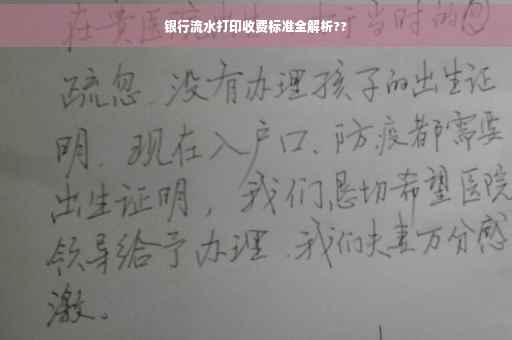 银行流水打印收费标准全解析??
在贵医院 当时的
疏忽、没有办理孩子的出生证
明、现在入户口、防疫都需要
出生证明，我们恳切希望医院
领导给予办理、我们夫妻万分感
激。